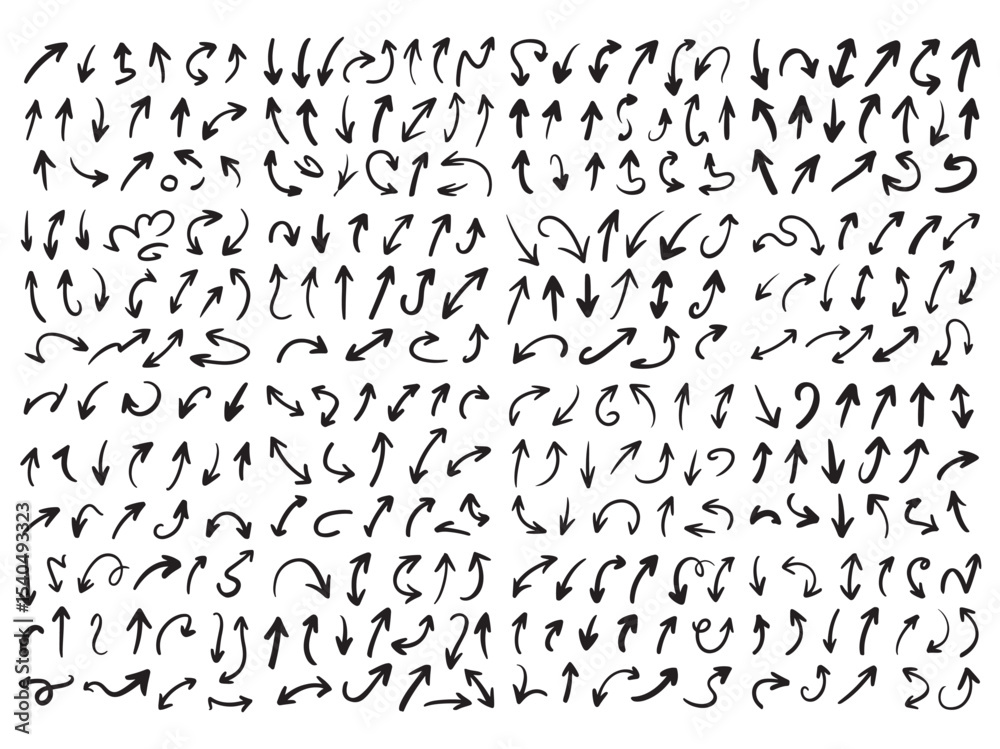 Adobe Stock | #1540493323